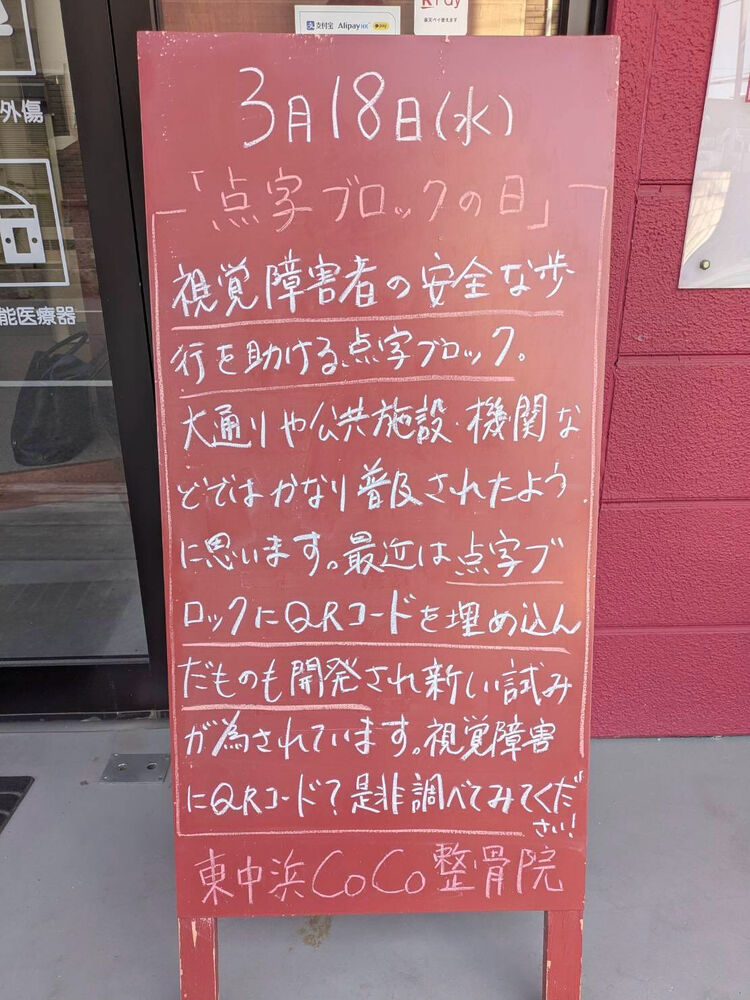 支付宝 Alipay HK pay
R Pay
楽天ペイ使えます
外傷
能医療器
3月18日(水)
「点字ブロックの日」
視覚障害者の安全な歩
行を助ける点字ブロック。
大通りや公共施設・機関な
どではかなり普及されたよう
に思います。最近は点字ブ
ロックにQRコードを埋め込ん
だものも開発され新しい試み
が為されています。視覚障害
にQRコード?是非調べてみてくだ
さい!
東中浜CoCo整骨院